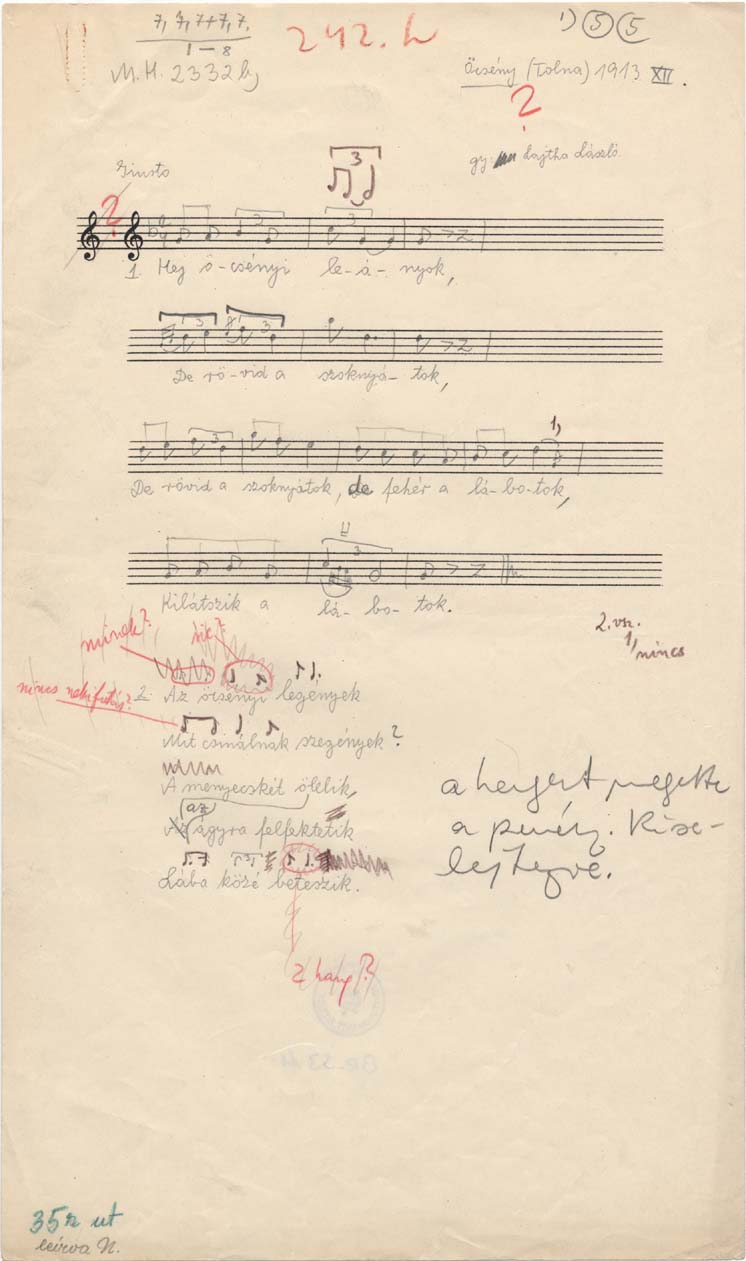 7, 7, 7+7, 7.
1-8
M.H. 2332 b)
242. h
1) 5 5
Őcsény (Tolna) 1913 XII.
?
gy. Lajtha László.
Giusto
?
3
3 3
1. Hej ö-csényi le-á-nyok,
3 3
De rö-vid a szoknyá-tok,
3 1)
De rövid a szoknyátok, de fehér a lá-bo-tok,
3
Kilátszik a lá-bo-tok.
2. vsz.
1) nincs
minek?
nincs nekifutás?
2. Az öcsényi legények
Mit csinálnak szegények?
A menyecskét ölelik,
(az)
ágyra felfektetik
Lába közé beteszik.
2 hang?
a hengert megette
a penész. Kise-
lejtezve.
35r ut
leírva N.